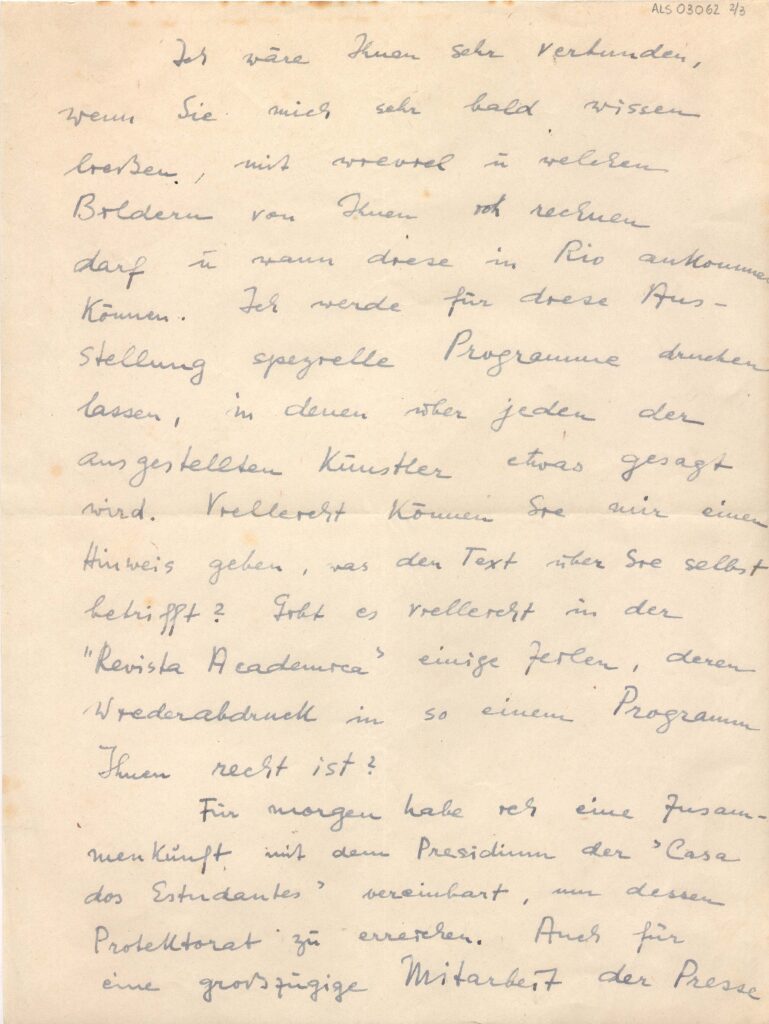 ALS 03062 2/3
Ich wäre Ihnen sehr verbunden,
wenn Sie mich sehr bald wissen
ließen, mit wieviel u welchen
Bildern von Ihnen ich rechnen
darf u wann diese in Rio ankommen
können. Ich werde für diese Aus-
stellung spezielle Programme drucken
lassen, in denen über jeden der
ausgestellten Künstler etwas gesagt
wird. Vielleicht können Sie mir einen
Hinweis geben, was den Text über Sie selbst
betrifft? Gibt es vielleicht in der
"Revista Academica" einige Zeilen, deren
Wiederabdruck in so einem Programm
Ihnen recht ist?
Für morgen habe ich eine Zusam-
menkunft mit dem Presidium der "Casa
dos Estudantes" vereinbart, um dessen
Protektorat zu erreichen. Auch für
eine großzügige Mitarbeit der Presse